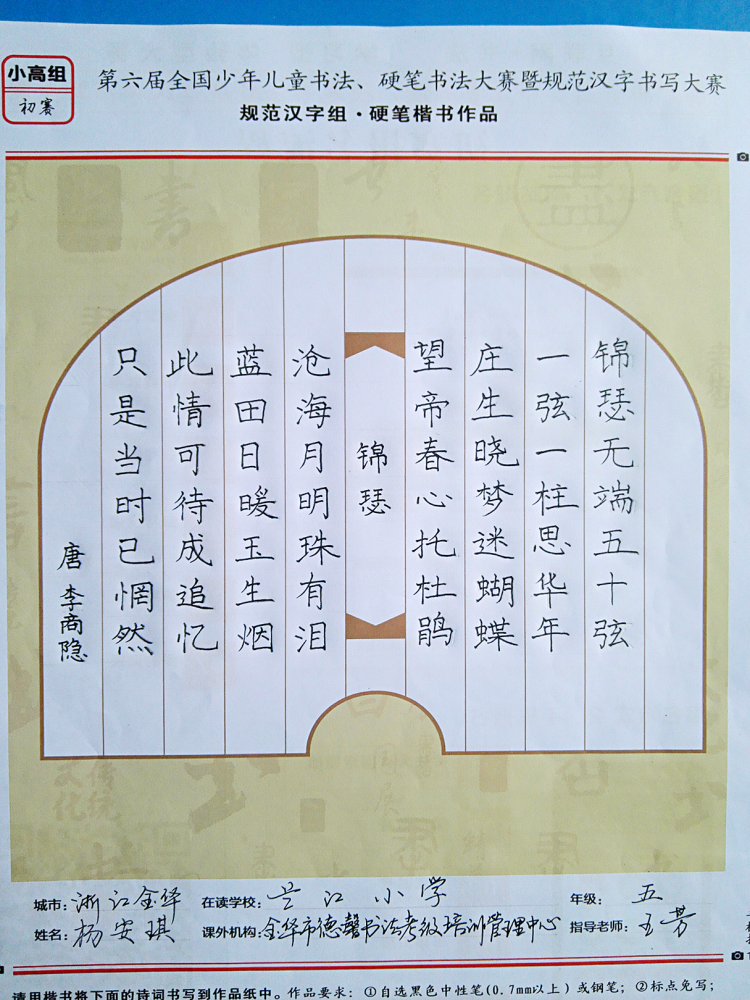 小高组
初赛
第六届全国少年儿童书法、硬笔书法大赛暨规范汉字书写大赛
规范汉字组·硬笔楷书作品
锦瑟无端五十弦
一弦一柱思华年
庄生晓梦迷蝴蝶
望帝春心托杜鹃
锦瑟
沧海月明珠有泪
蓝田日暖玉生烟
此情可待成追忆
只是当时已惘然
唐 李商隐
城市：浙江金华 在读学校：兰江小学 年级：五
姓名：杨安琪 课外机构：金华市德馨书法考级培训管理中心 指导老师：王芳
请用楷书将下面的诗词书写到作品纸中。作品要求：①自选黑色中性笔(0.7mm以上)或钢笔；②标点免写；